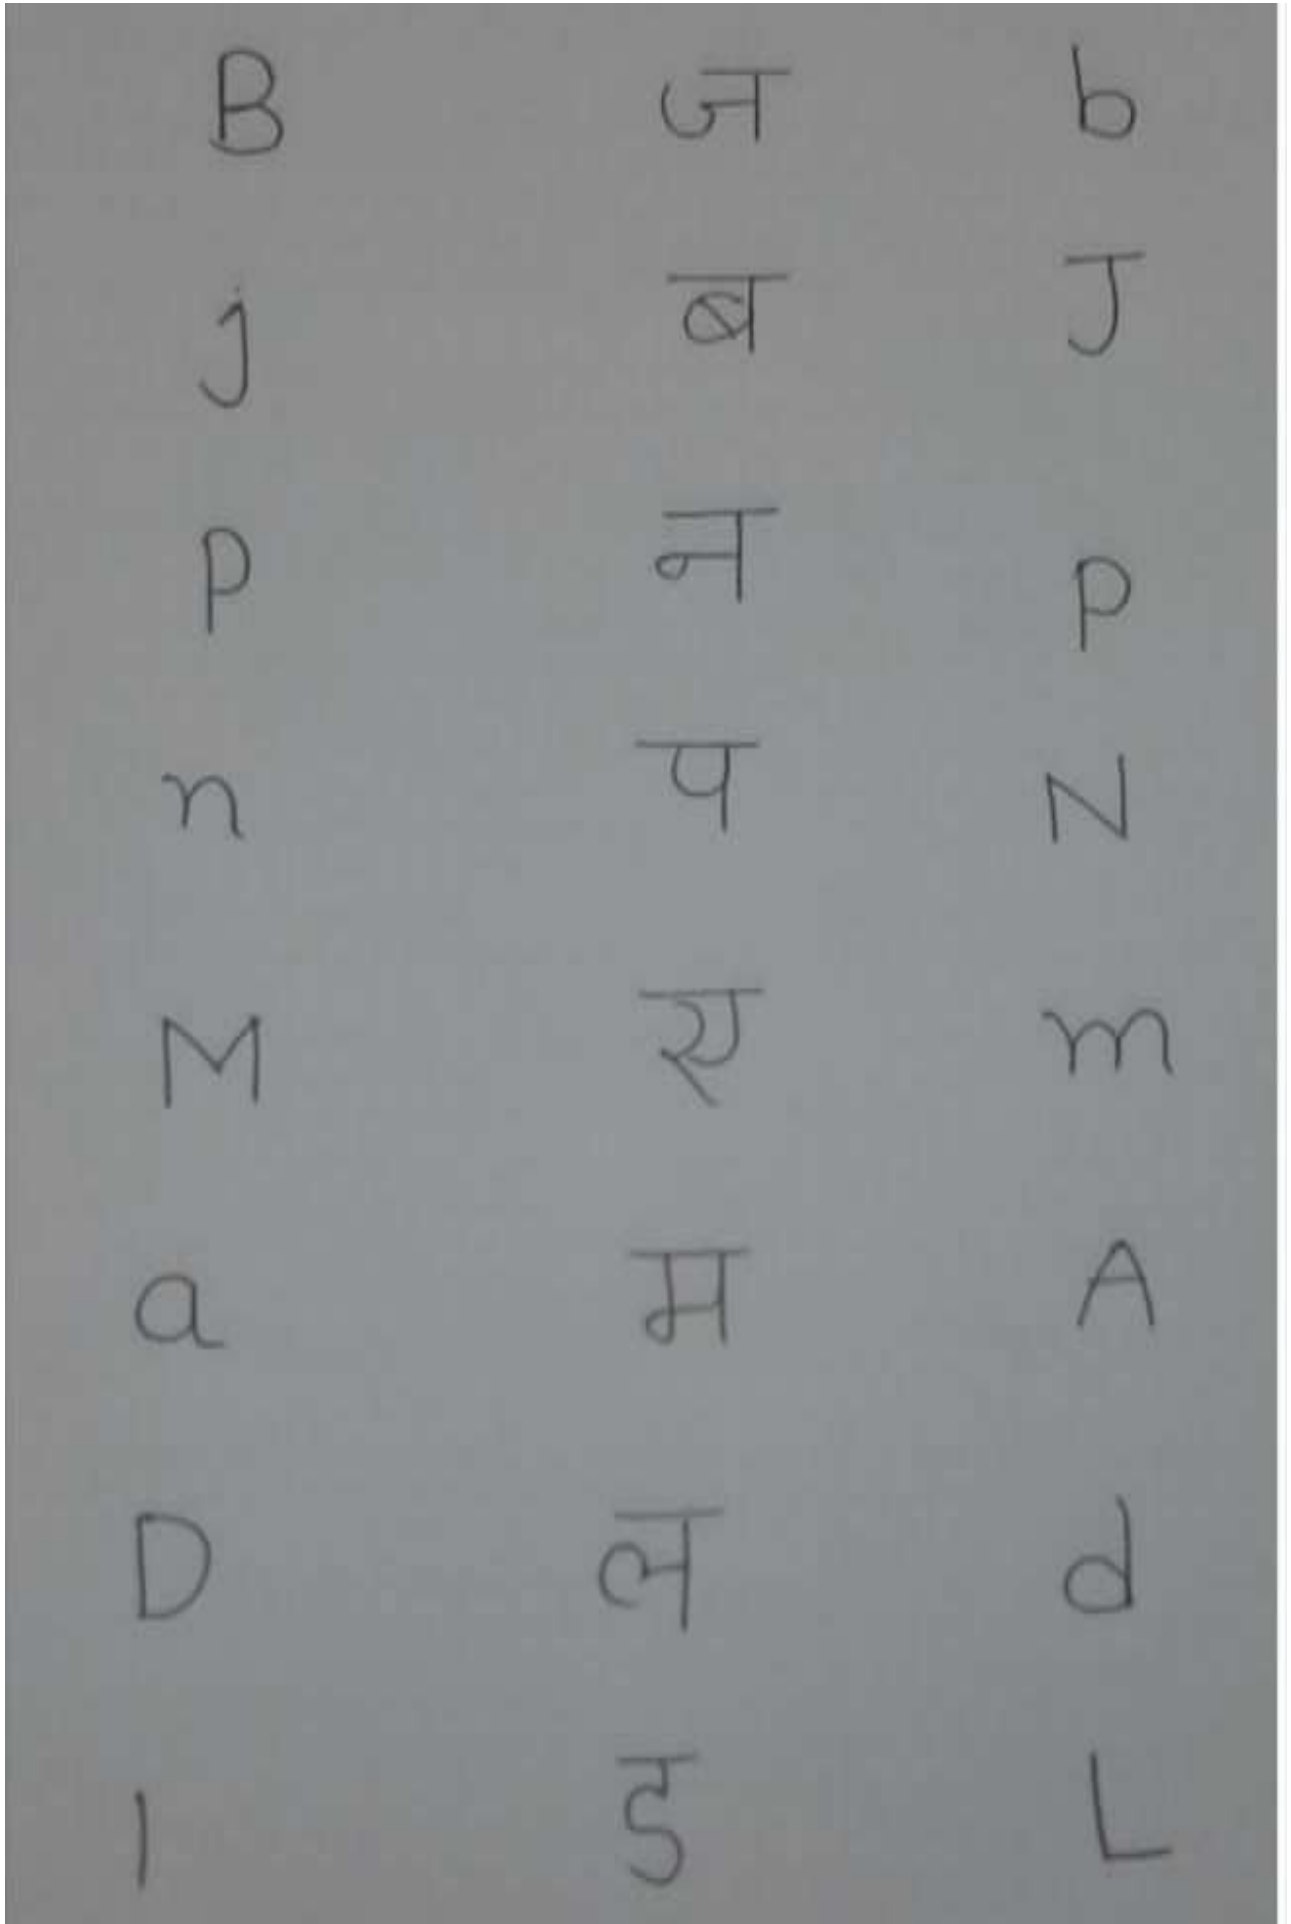 B ज b
j ब J
P न p
n प N
M ए m
a म A
D ल d
l ड L